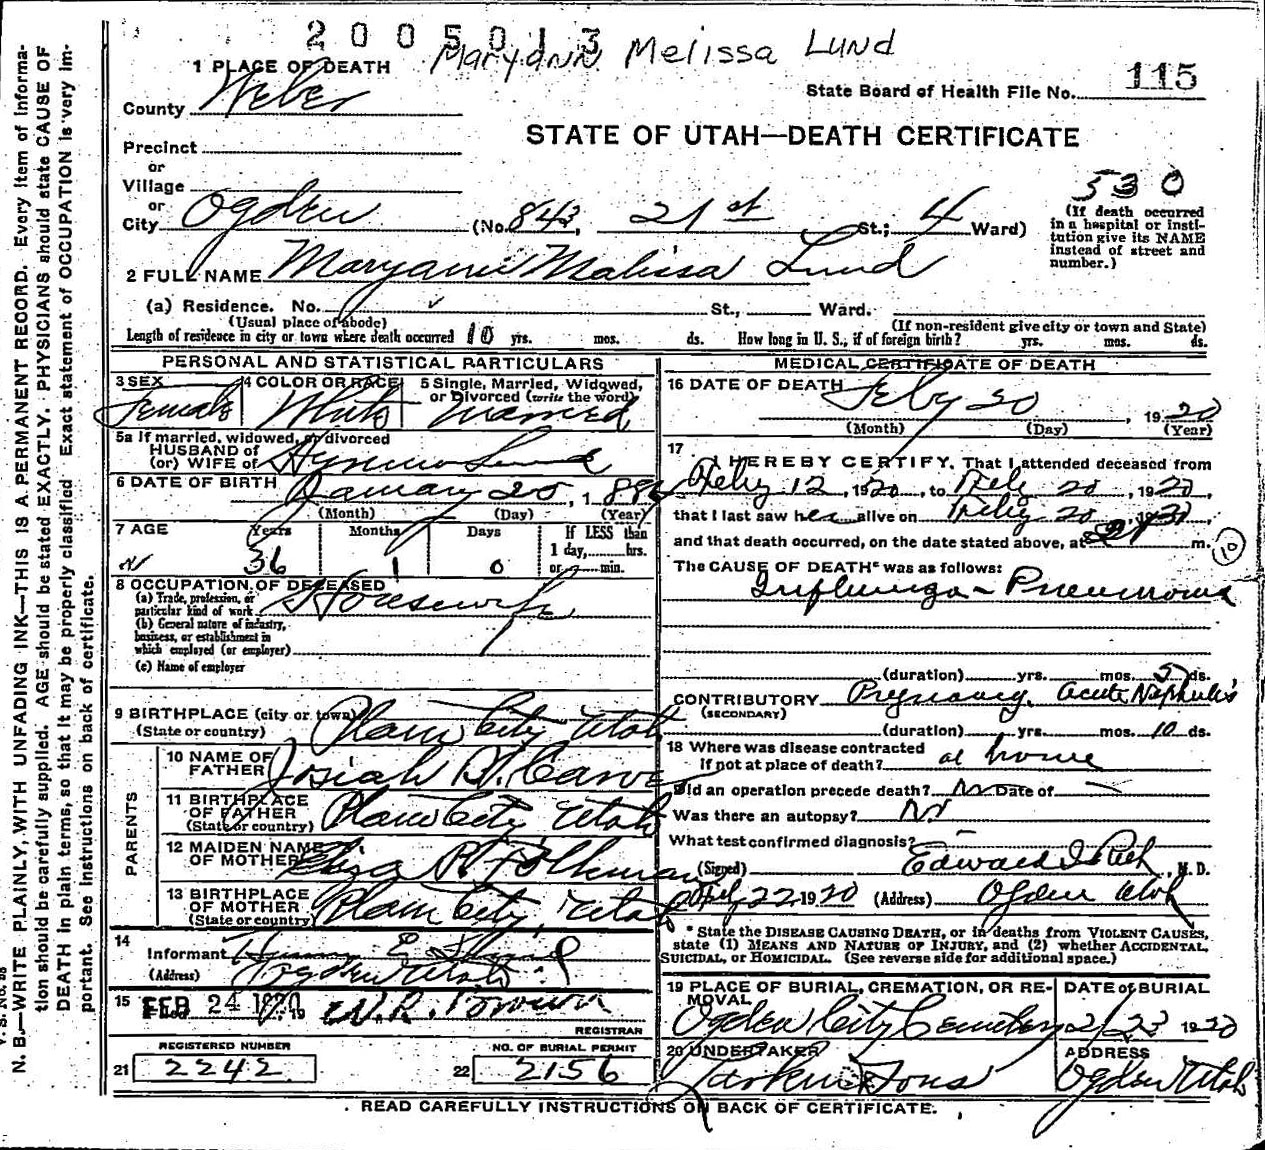 2005013
Maryann Melissa Lund
1 PLACE OF DEATH
County Weber
State Board of Health File No. 115
STATE OF UTAH—DEATH CERTIFICATE
Precinct
or
Village
or
City Ogden (No. 843, 21st St.; 4 Ward)
530
(If death occurred in a hospital or insti-
tution give its NAME
instead of street and
number.)
2 FULL NAME Maryann Malissa Lund
(a) Residence. No. St., Ward.
(Usual place of abode) (If non-resident give city or town and State)
Length of residence in city or town where death occurred 10 yrs. mos. ds. How long in U. S., if of foreign birth? yrs. mos. ds.
PERSONAL AND STATISTICAL PARTICULARS
3 SEX Female
4 COLOR OR RACE White
5 Single, Married, Widowed,
or Divorced (write the word)
Married
5a If married, widowed, or divorced
HUSBAND of
(or) WIFE of Lund
6 DATE OF BIRTH January 20, 188
(Month) (Day) (Year)
7 AGE Years Months Days If LESS than
1 day, hrs.
or min.
36 1 0
8 OCCUPATION OF DECEASED
(a) Trade, profession, or
particular kind of work Housewife
(b) General nature of industry,
business, or establishment in
which employed (or employer)
(c) Name of employer
9 BIRTHPLACE (city or town)
(State or country) Plain City Utah
PARENTS
10 NAME OF
FATHER Josiah
11 BIRTHPLACE
OF FATHER
(State or country) Plain City Utah
12 MAIDEN NAME
OF MOTHER Folkman
13 BIRTHPLACE
OF MOTHER
(State or country) Plain City, Utah
14
Informant
(Address) Ogden Utah
15 FEB 24 1920
W. R. Brown
REGISTRAR
REGISTERED NUMBER
21 2242
NO. OF BURIAL PERMIT
22 2156
MEDICAL CERTIFICATE OF DEATH
16 DATE OF DEATH Feby 20, 1920
(Month) (Day) (Year)
17
I HEREBY CERTIFY, That I attended deceased from
Feby 12, 1920, to Feby 20, 1920,
that I last saw her alive on Feby 20, 1920
and that death occurred, on the date stated above, at m.
10
The CAUSE OF DEATH* was as follows:
Influenza - Pneumonia
(duration) yrs. mos. 5 ds.
CONTRIBUTORY Pregnancy, Acute Nephritis
(SECONDARY)
(duration) yrs. mos. 10 ds.
18 Where was disease contracted
If not at place of death? at home
Did an operation precede death? No Date of —
Was there an autopsy? No
What test confirmed diagnosis? —
(Signed) Edward I. Rich, M. D.
Feby 22, 1920 (Address) Ogden Utah
* State the DISEASE CAUSING DEATH, or in deaths from VIOLENT CAUSES,
state (1) MEANS AND NATURE OF INJURY, and (2) whether ACCIDENTAL,
SUICIDAL, or HOMICIDAL. (See reverse side for additional space.)
19 PLACE OF BURIAL, CREMATION, OR RE-
MOVAL
Ogden City Cemetery
DATE of BURIAL
2/23 1920
20 UNDERTAKER
Larkin & Sons
ADDRESS
Ogden Utah
READ CAREFULLY INSTRUCTIONS ON BACK OF CERTIFICATE.
N. B.—WRITE PLAINLY, WITH UNFADING INK—THIS IS A PERMANENT RECORD. Every item of informa-
tion should be carefully supplied. AGE should be stated EXACTLY. PHYSICIANS should state CAUSE OF
DEATH in plain terms, so that it may be properly classified. Exact statement of OCCUPATION is very im-
portant. See Instructions on back of certificate.